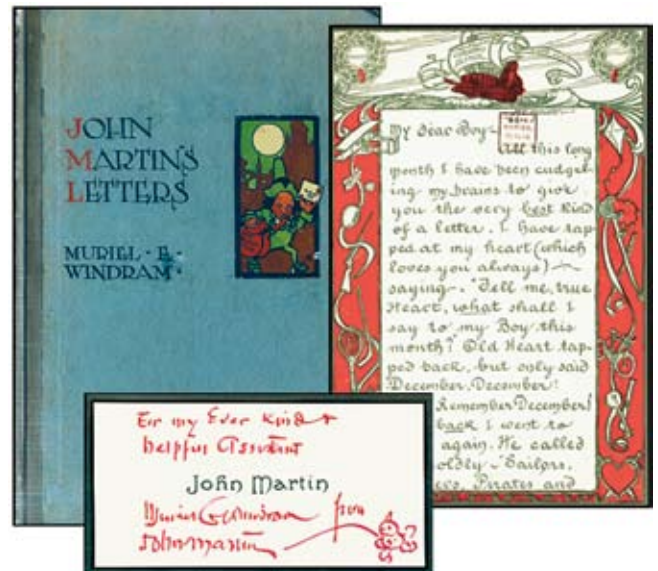 JOHN
MARTIN'S
LETTERS
MURIEL · E ·
WINDRAM ·
My dear Boy –
All this long
month I have been cudgel-
ing my brains to give
you the very best kind
of a letter. I have tap-
ped at my heart (which
loves you always) –
saying – "Tell me, true
Heart, what shall I
say to my Boy this
month?" Old Heart tap-
ped back, but only said
December, December!
Remember December!
back I went to
again. He called
oldly – "Sailors,
Pirates and
For my Ever Kind &
helpful Assistant
John Martin
from
John Martin